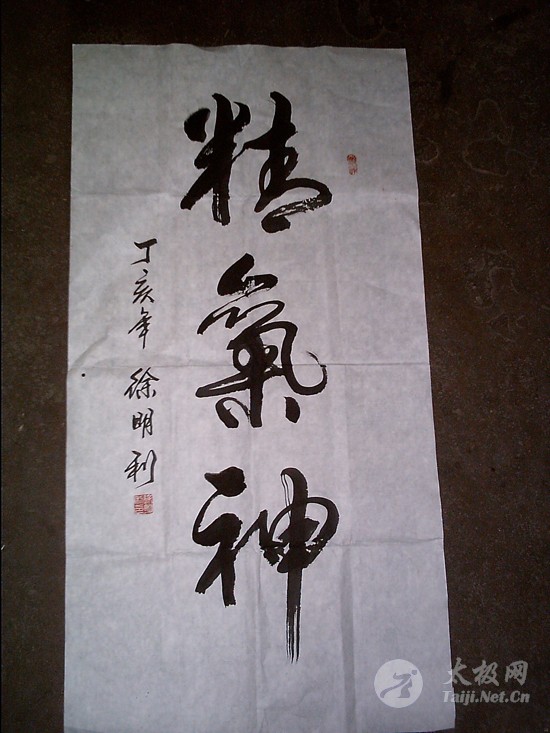 精氣神
丁亥年 徐明利
太极网
Taiji.Net.Cn